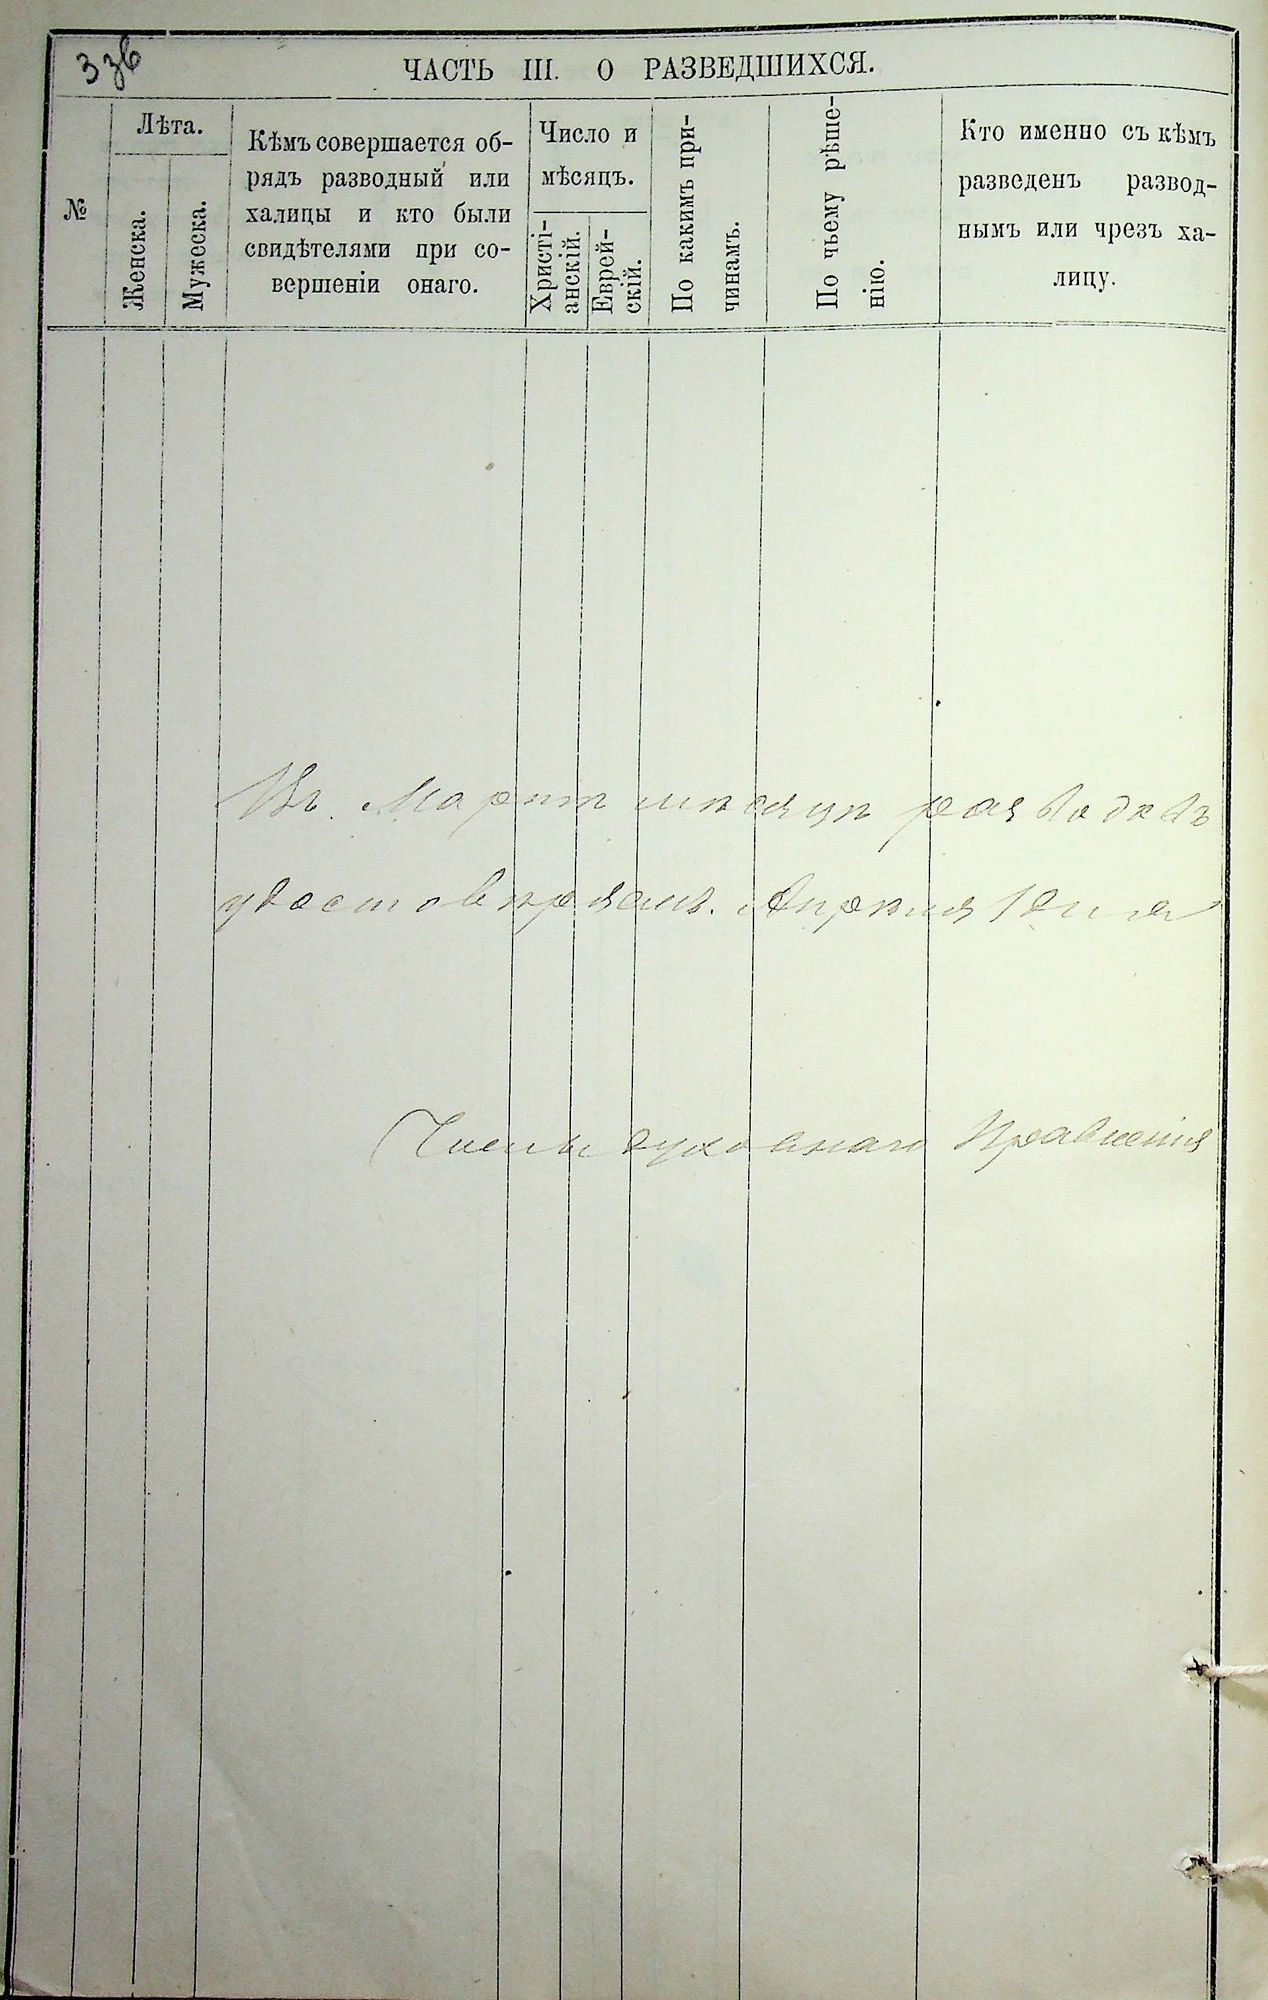 ЧАСТЬ III. О РАЗВЕДШИХСЯ.
№
Лѣта.
Женска.
Мужеска.
Кѣмъ совершается об-
рядъ разводный или
халицы и кто были
свидѣтелями при со-
вершеніи онаго.
Число и
мѣсяцъ.
Христі-
анскій.
Еврей-
скій.
По какимъ при-
чинамъ.
По чьему рѣше-
нію.
Кто именно съ кѣмъ
разведенъ развод-
нымъ или чрезъ ха-
лицу.
Въ Мартѣ мѣсяцѣ разводовъ
удостовѣряемъ. Апрѣля 1 дня
Члены духовнаго Правленія